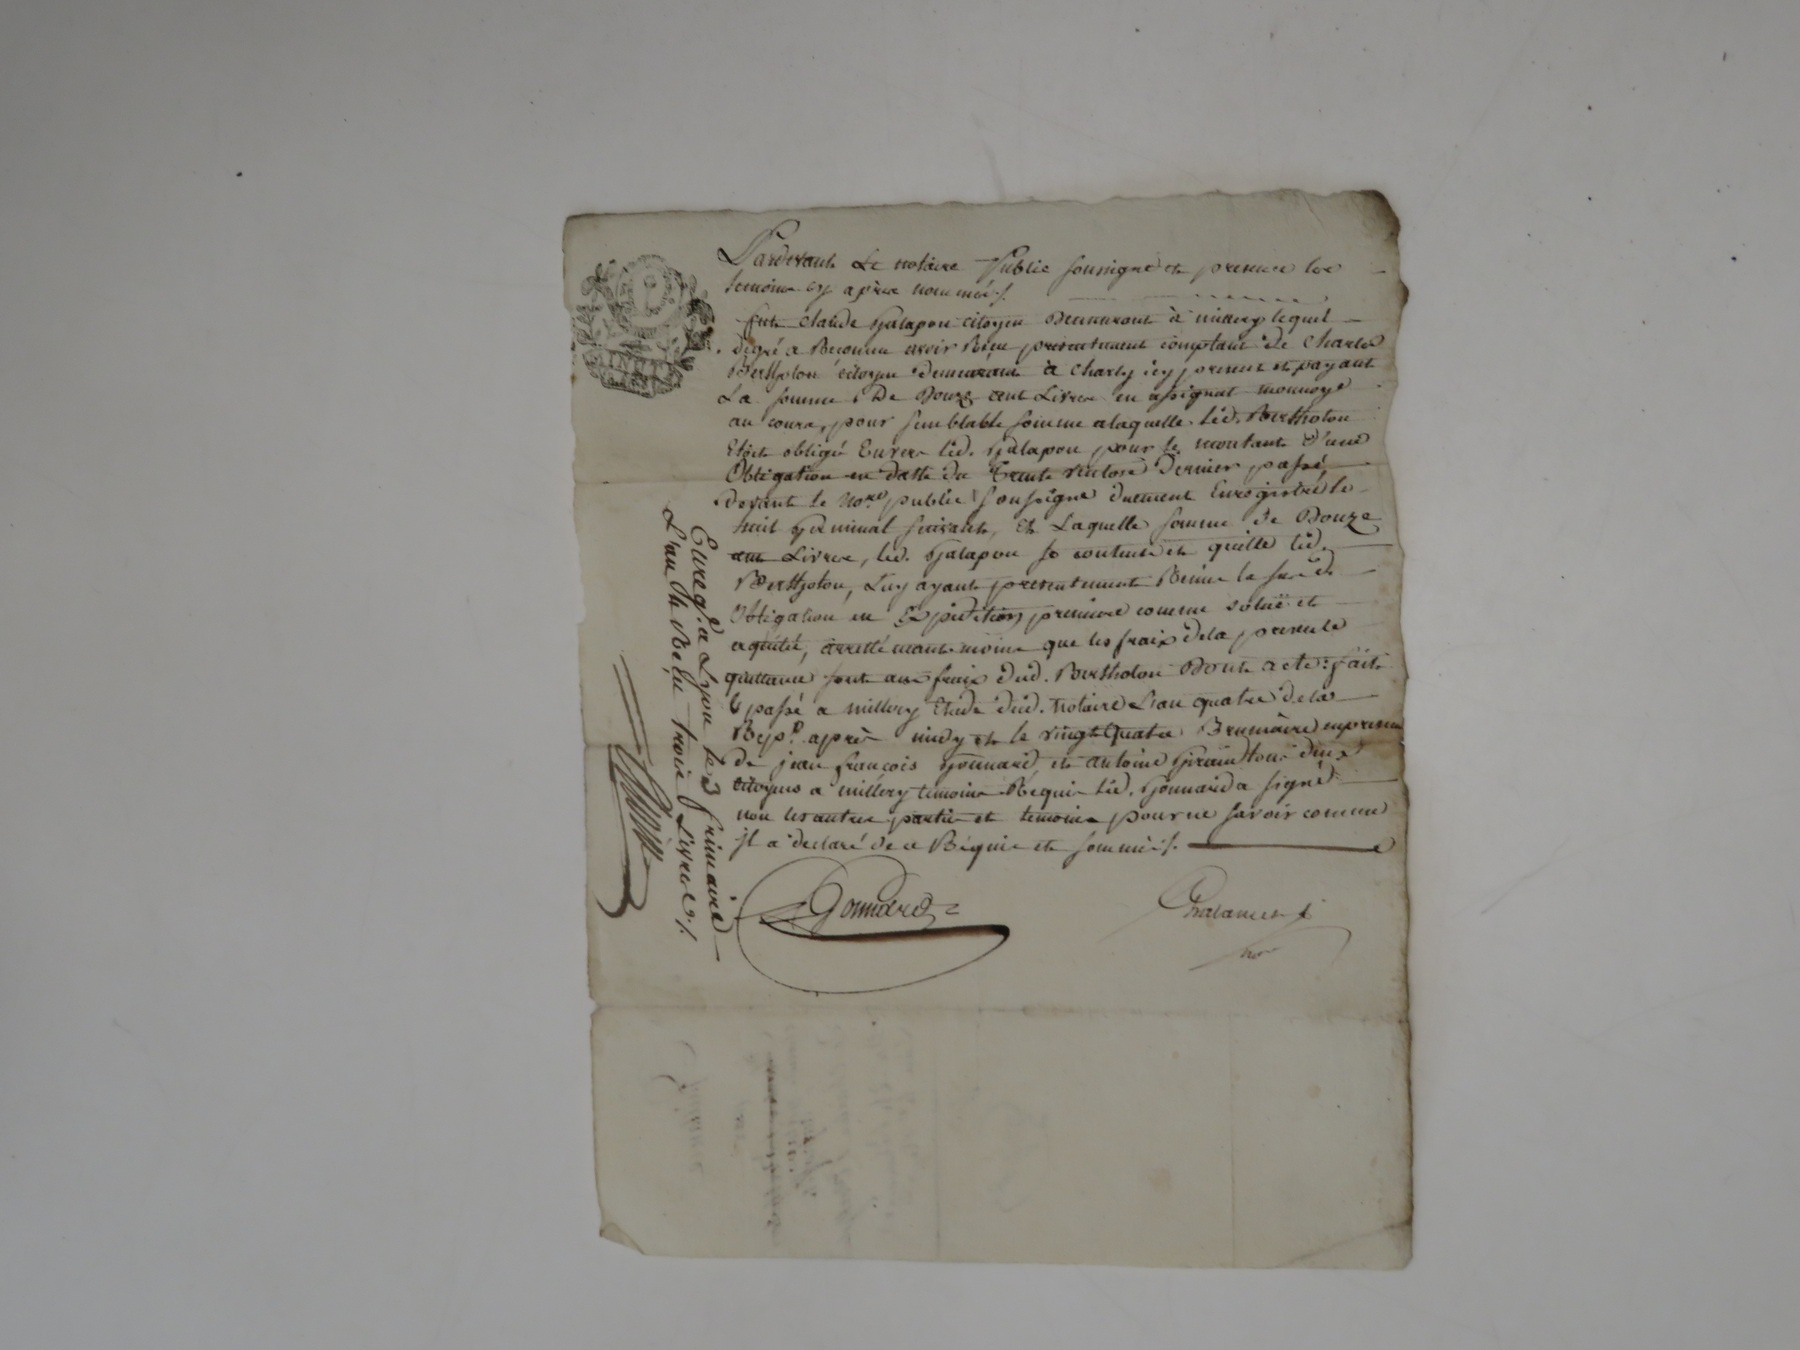 Pardevant Le notaire Public soussigné et presence les
temoins cy après nommés /.
fut Claude Galapon citoyen Demeurant à millery lequel
degré a Reconnu avoir Reçu presentement comptant de Charles
Bertholon citoyen Demeurant à Charly icy present et payant
La somme De Douze cent Livres en assignat monnoye
au cours, pour semblable somme alaquelle led. Bertholon
Etoit obligé Envers led. Galapon pour le montant d'une
Obligation en datte du Trente ventose Dernier passé
Devant le no.re public soussigné duement Enregistré le
huit Germinal suivant, Et Laquelle somme de Douze
cent Livres, led. Galapon se contente et quitte led.
Bertholon, Luy ayant presentement Remis la susd.
Obligation en Expedition premiere comme soluë et
aquitté, arretté neantmoins que les fraix dela presente
quittance sont aux fraix dud. Bertholon Dont acte : fait
& passé a millery Etude dud. Notaire L'an quatre dela
Rep.e après midy et le vingt Quatre Brumaire en presence
de jean françois Gonnard, et antoine tous deux
citoyens a millery temoins Requis led. Gonnard a signé
non les autres parties et temoins pour ne savoir comme
il a declaré de ce Requis et sommés /.
Gonnard
Chalancet
no.re
Enreg.é a Lyon le 3 frimaire
L'an 4 Reçu trois Livres /.